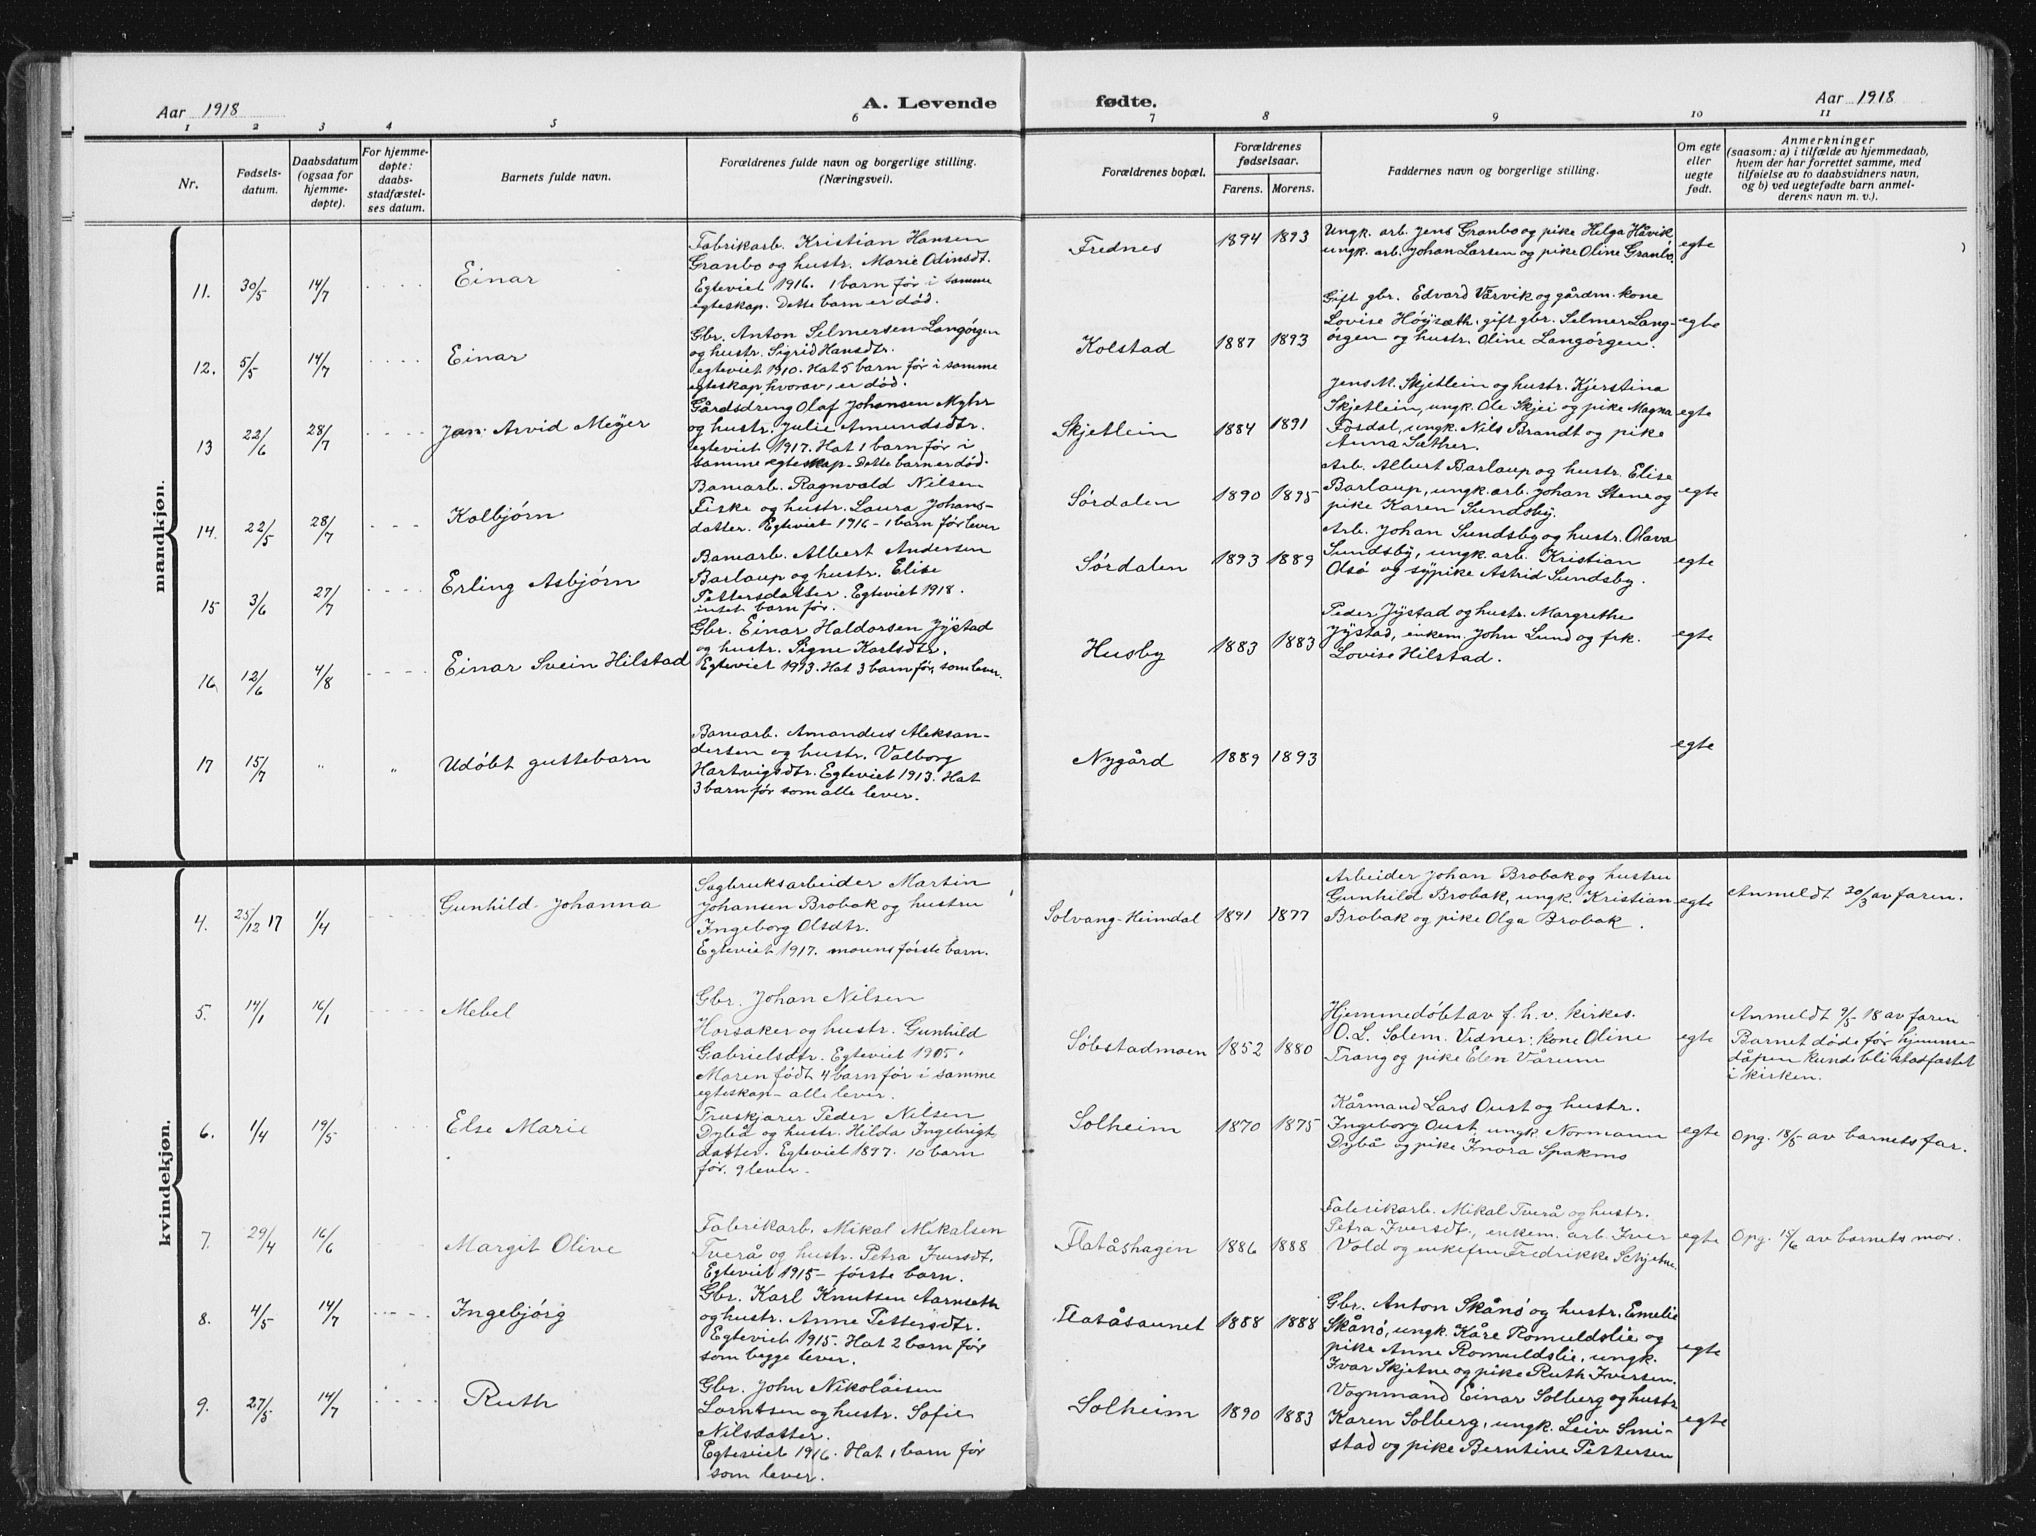 Aar 1918
A. Levende
fødte.
Aar 1918
1 2 3 4 5 6 7 8 9 10 11
Nr.
Fødsels-
datum.
Daabsdatum
(ogsaa for
hjemme-
døpte).
For hjemme-
døpte:
daabs-
stadfæstel-
ses datum.
Barnets fulde navn.
Forældrenes fulde navn og borgerlige stilling.
(Næringsvei).
Forældrenes bopæl.
Forældrenes
fødselsaar.
Farens. Morens.
Faddernes navn og borgerlige stilling.
Om egte
eller
uegte
født.
Anmerkninger
(saasom: a) i tilfælde av hjemmedaab,
hvem der har forrettet samme, med
tilføielse av to daabsvidners navn,
og b) ved uegtefødte barn anmel-
derens navn m. v.).
mandkjøn.
11. 30/5 14/7
Einar
Fabrikarb. Kristian Hansen
Granbo og hustr. Marie Odinsdt.
Egteviet 1916. 1 barn før i samme
egteskap. Dette barn er død.
Frednes
1894 1893
Ungk. arb. Jens Granbo og pike Helga Håvik
ungk. arb. Johan Larsen og pike Oline Granbo.
egte
12. 5/5 14/7
Einar
Gbr. Anton Selmersen Langörgen
og hustr. Sigrid Hansdtr.
egteviet 1910. Hat 5 barn før i samme
egteskap, hvorav 1 er død.
Kolstad
1887 1893
Gift gbr. Edvard Vårvik og gårdm. kone
Lovise Höysæth, gift gbr. Selmer Lang-
örgen og hustr. Oline Langörgen.
egte
13 22/6 28/7
Jan Arvid Meyer
Gårdsdreng Olaf Johansen Myhr
og hustr. Julie Amundsdtr.
egteviet 1917. Hat 1 barn før i
samme egteskap. Dette barn er død.
Skjetlein
1884 1891
Jens M. Skjetlein og hustr. Kjerstina
Skjetlein, ungk. Ole Skjei og pike Magna
Fosdal, ungk. Nils Brandt og pike
Anna Sæther.
egte
14. 22/5 28/7
Kolbjörn
Banearb. Ragnvald Nilsen
Fiske og hustr. Laura Johans-
datter. Egteviet 1916 - 1 barn før lever
Sørdalen
1890 1895
Arb. Albert Barlaup og hustr. Elise
Barlaup, ungk. arb. Johan Stene og
pike Karen Sundsby.
egte
15 3/6 27/7
Erling Asbjörn
Banearb. Albert Andersen
Barlaup og hustr. Elise
Pettersdatter. Egteviet 1918.
intet barn før.
Sørdalen
1893 1889
Arb. Johan Sundsby og hustr. Olava
Sundsby, ungk. arb. Kristian
Olsö og sypike Astrid Sundsby.
egte
16. 12/6 4/8
Einar Svein Hilstad
Gbr. Einar Haldorsen Jystad
og hustr. Signe Karlsdtr.
Egteviet 1913. Hat 3 barn før, som lever.
Husby
1883 1883
Peder Jystad og hustr. Margrethe
Jystad, enkem. John Lund og frk.
Lovise Hilstad.
egte
17 15/7 " "
Udöbt guttebarn
Banearb. Amandus Aleksan-
dersen og hustr. Valborg
Hartvigsdtr. Egteviet 1913. Hat
3 barn før som alle lever.
Nygård
1889 1893
egte
kvindekjøn.
4. 25/12 17 1/4
Gunhild Johanna
Sagbruksarbeider Martin
Johansen Brobak og hustru
Ingeborg Olsdtr.
Egteviet 1917. morens første barn.
Solvang-Heimdal
1891 1877
Arbeider Johan Brobak og hustru
Gunhild Brobak, ungk. Kristian
Brobak og pike Olga Brobak.
egte
Anmeldt 30/3 av faren.
5. 14/1 16/1
Mebel
Gbr. Johan Nilsen
Horsaker og hustr. Gunhild
Gabrielsdtr. Egteviet 1905.
Moren født 4 barn før i samme
egteskap - alle lever.
Söbstadmoen
1852 1880
Hjemmedöbt av f. h. v. kirkes.
O. L. Solem. Vidner: kone Oline
Trang og pike Elen Vårum
egte
Anmeldt 9/5 18 av faren
Barnet døde før hjemme-
dåpen kunde bli stadfæstet
i kirken.
6. 1/4 19/5
Else Marie
Truskjærer Peder Nilsen
Dybå og hustr. Hilda Ingebrigt-
datter. Egteviet 1897. 10 barn
før. 9 lever.
Solheim
1870 1875
Kårmand Lars Oust og hustr.
Ingeborg Oust, ungk. Normann
Dybå og pike Inora Spakmo
egte
Opg. 18/5 av barnets far.
7. 29/4 16/6
Margit Olive
Fabrikarb. Mikal Mikalsen
Tverå og hustr. Petra Iversdt.
Egteviet 1915 - første barn.
Flatåshagen
1886 1888
Fabrikarb. Mikal Tverå og hustr.
Petra Iversdt, enkem. arb. Iver
Vold og enkefru Fredrikke Schjetne.
egte
Opg. 15/6 av barnets mor.
8. 4/5 14/7
Ingebjörg
Gbr. Karl Knutsen Aarnseth
og hustr. Anne Pettersdtr.
Egteviet 1915. Hat 2 barn før
som begge lever.
Flatåsaunet
1888 1888
Gbr. Anton Skånö og hustr. Emelie
Skånö, ungk. Kåre Romuldslie og
pike Anne Romuldslie, ungk.
Ivar Skjetne og pike Ruth Iversen.
egte
9. 27/5 14/7
Ruth
Gbr. John Nikolaisen
Lorntsen og hustr. Sofie
Nilsdatter.
Egteviet 1916. Hat 1 barn før
som lever.
Solheim
1890 1883
Vognmand Einar Solberg og hustr
Karen Solberg, ungk. Leiv Smi-
stad og pike Berntine Pettersen
egte